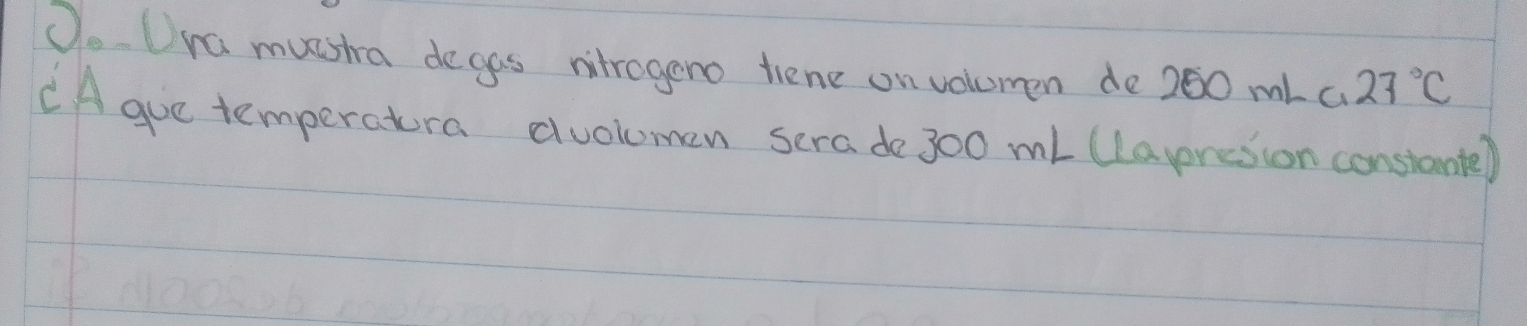 Una muestra de gas nitrogeno tiene un volumen de 250 mL a 27 °C
¿A que temperatura el volumen sera de 300 mL (La presion constante)